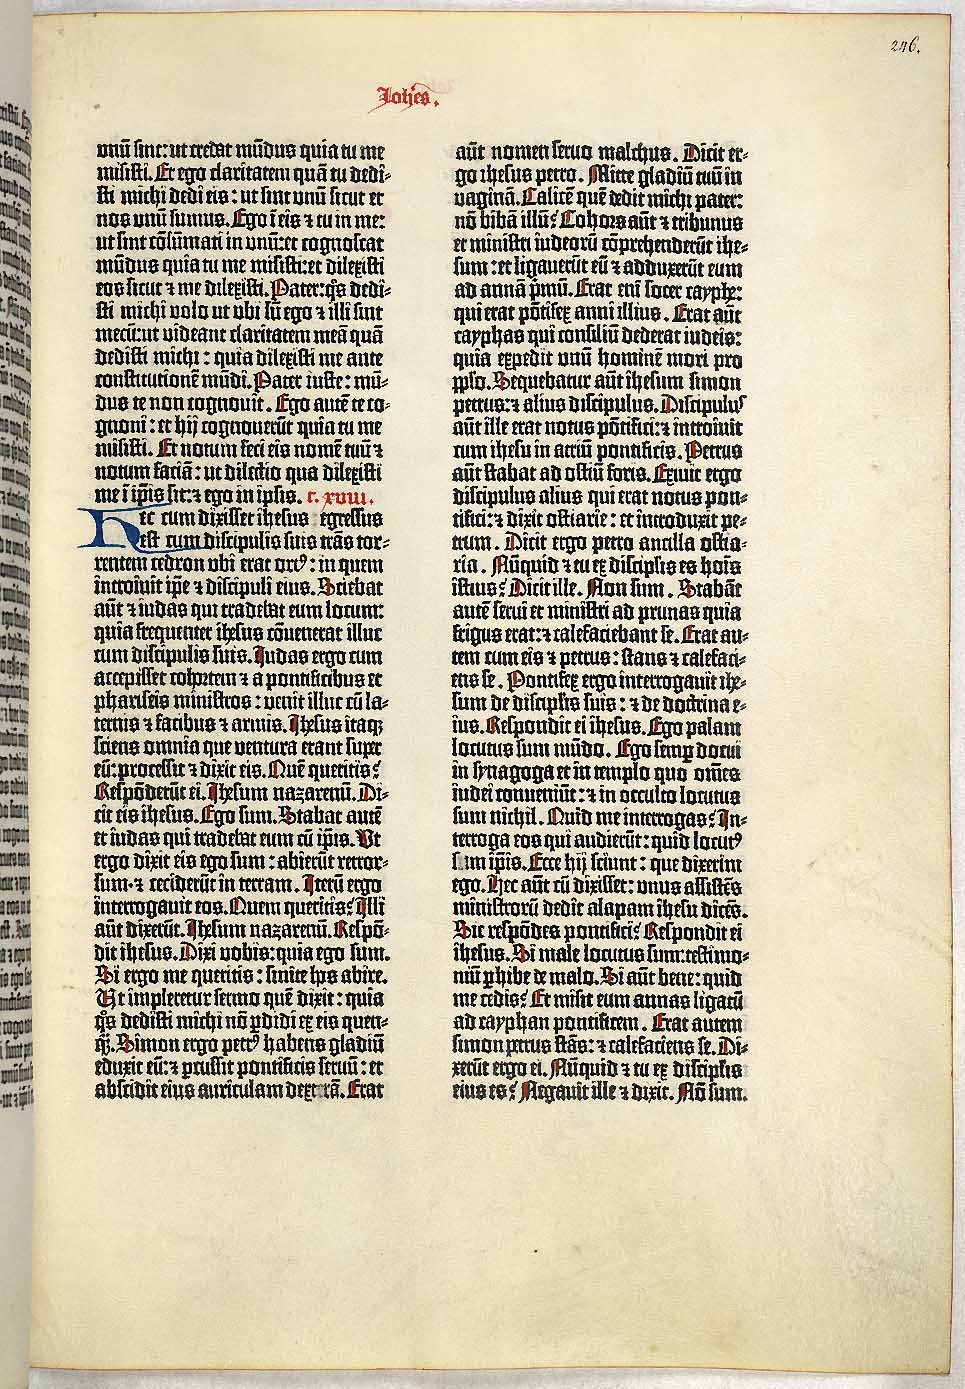 246.
Johẽs.
vnũ sint: ut credat mũdus quia tu me
misisti. Et ego claritatem quã tu dedi-
sti michi dedi eis: ut sint vnũ sicut et
nos vnũ sumus. Ego ĩ eis ⁊ tu in me:
ut sint cõsũmati in vnũ: et cognoscat
mũdus quia tu me misisti: et dilexisti
eos sicut ⁊ me dilexisti. Pater: q̃s dedi-
sti michi volo ut vbi sũ ego ⁊ illi sint
mecũ: ut videant claritatem meã quã
dedisti michi: quia dilexisti me ante
constitutionẽ mũdi. Pater iuste: mũ-
dus te non cognouit. Ego autẽ te co-
gnoui: et hij cognouerũt quia tu me
misisti. Et notum feci eis nomẽ tuũ ⁊
notum faciã: ut dilectio qua dilexisti
me ĩ ip̃is sit: ⁊ ego in ipsis. c. xviii.
Hec cum dixisset ihesus egressus
est cum discipulis suis trãs tor-
rentem cedron vbi erat ortꝰ: in quem
introiuit ip̃e ⁊ discipuli eius. Sciebat
aũt ⁊ iudas qui tradebat eum locum:
quia frequenter ihesus cõuenerat illuc
cum discipulis suis. Judas ergo cum
accepisset cohortem ⁊ a pontificibus et
phariseis ministros: venit illuc cũ la-
ternis ⁊ facibus ⁊ armis. Jhesus itaqꝫ
sciens omnia que ventura erant super
eũ: processit ⁊ dixit eis. Quẽ queritis?
Respõderũt ei. Jhesum nazarenũ. Di-
cit eis ihesus. Ego sum. Stabat autẽ
et iudas qui tradebat eum cũ ip̃is. Ut
ergo dixit eis ego sum: abierũt retror-
sum· ⁊ ceciderũt in terram. Iterũ ergo
interrogauit eos. Quem queritis? Illi
aũt dixerũt. Jhesum nazarenũ. Respõ-
dit ihesus. Dixi vobis: quia ego sum.
Si ergo me queritis: sinite hos abire.
Ut impleretur sermo quẽ dixit: quia
q̃s dedisti michi nõ ꝑdidi ex eis quen-
q̃. Simon ergo petrꝰ habens gladiũ
eduxit eũ: ⁊ ꝑcussit pontificis seruũ: et
abscidit eius auriculam dextrã. Erat
aũt nomen seruo malchus. Dicit er-
go ihesus petro. Mitte gladiũ tuũ in
vaginã. Calicẽ quẽ dedit michi pater:
nõ bibã illũ? Cohors aũt ⁊ tribunus
et ministri iudeorũ cõprehenderũt ihe-
sum: et ligauerũt eũ ⁊ adduxerũt eum
ad annã p̃mũ. Erat enĩ socer cayphe:
qui erat põtifex anni illius. Erat aũt
cayphas qui consiliũ dederat iudeis:
quia expedit vnũ hominẽ mori pro
pp̃lo. Sequebatur aũt ihesum simon
petrus: ⁊ alius discipulus. Discipulus
aũt ille erat notus põtifici: ⁊ introiuit
cum ihesu in atriũ pontificis. Petrus
aũt stabat ad ostiũ foris. Exiuit ergo
discipulus alius qui erat notus pon-
tifici: ⁊ dixit ostiarie: et introduxit pe-
trum. Dicit ergo petro ancilla ostia-
ria. Nũquid ⁊ tu ex discip̃lis es hoĩs
istius? Dicit ille. Non sum. Stabãt
autẽ serui et ministri ad prunas quia
frigus erat: ⁊ calefaciebant se. Erat au-
tem cum eis ⁊ petrus: stans ⁊ calefaci-
ens se. Pontifex ergo interrogauit ihe-
sum de discip̃lis suis: ⁊ de doctrina e-
ius. Respondit ei ihesus. Ego palam
locutus sum mũdo. Ego semꝑ docui
in synagoga et in templo quo om̃es
iudei conueniũt: ⁊ in occulto locutus
sum nichil. Quid me interrogas? In-
terroga eos qui audierũt: quid locutꝰ
sum ip̃is. Ecce hij sciunt: que dixerim
ego. Hec aũt cũ dixisset: vnus assistẽs
ministrorũ dedit alapam ihesu dicẽs.
Sic respõdes pontifici? Respondit ei
ihesus. Si male locutus sum: testimo-
niũ ꝑhibe de malo. Si aũt bene: quid
me cedis? Et misit eum annas ligatũ
ad cayphan pontificem. Erat autem
simon petrus stãs: ⁊ calefaciens se. Di-
xerũt ergo ei. Nũquid ⁊ tu ex discip̃lis
eius es? Negauit ille ⁊ dixit. Nõ sum.